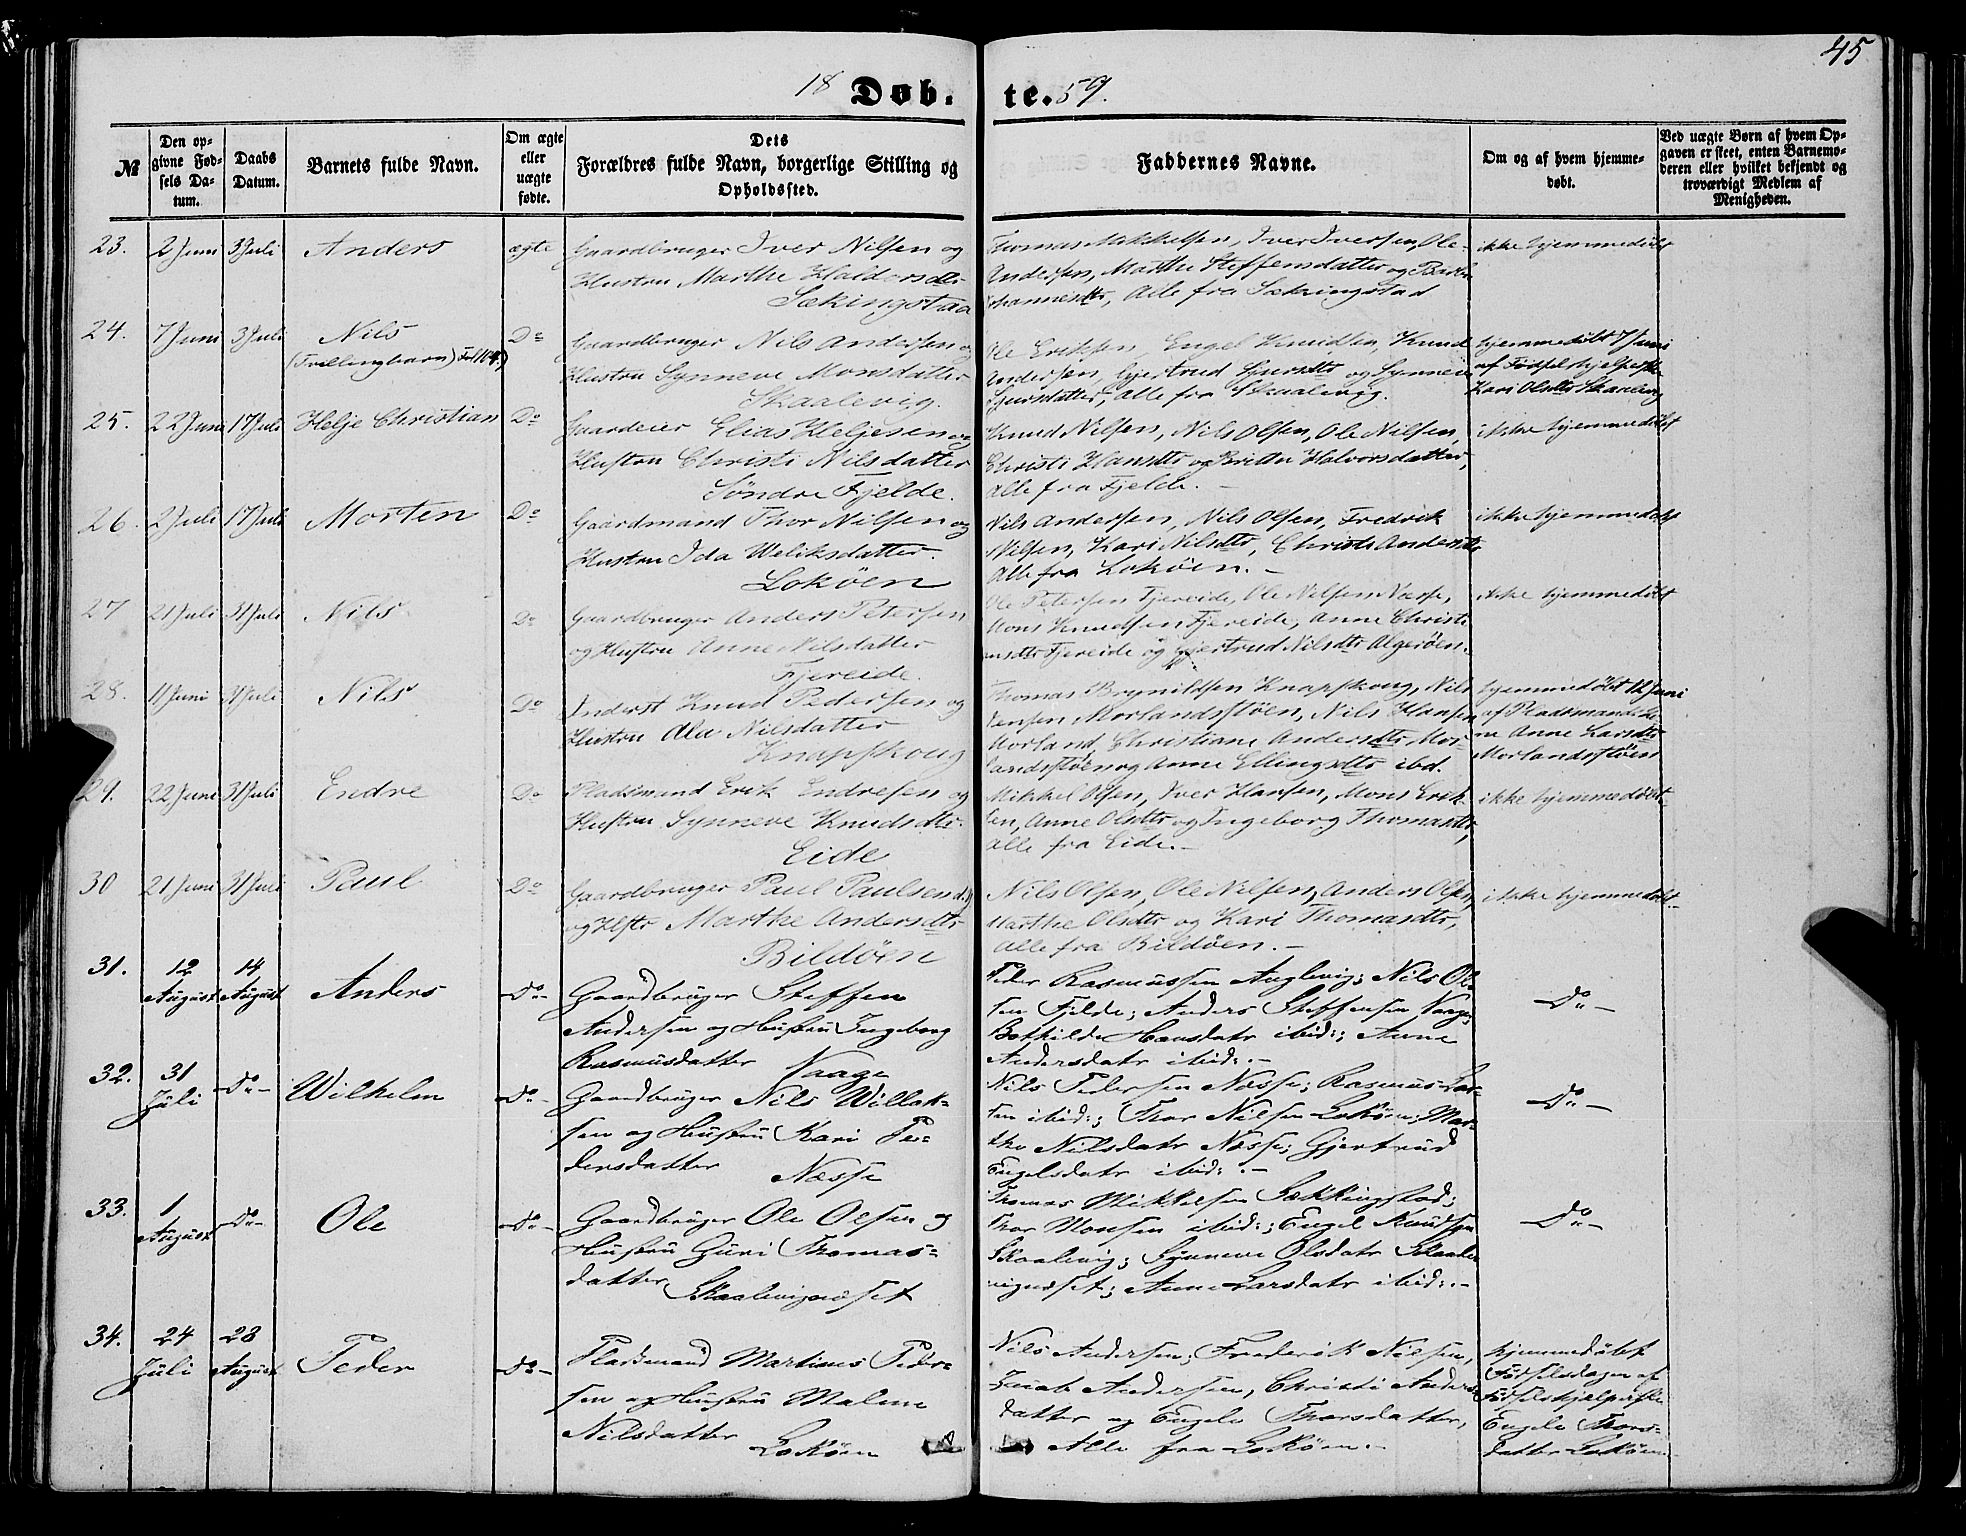 45
18 Døb. te. 59.
№
Den opgivne Fødsels Datum.
Daabs Datum.
Barnets fulde Navn.
Om ægte eller uægte fødte.
Dets Forældres fulde Navn, borgerlige Stilling og Opholdssted.
Faddernes Navne.
Om og af hvem hjemmedøbt.
Ved uægte Børn af hvem Opgaven er skeet, enten Barnemoderen eller hvilket bekjendt og troværdigt Medlem af Menigheden.
23. 2 Juni 3 Juli Anders ægte
Gaardbruger Iver Nilsen og
Hustru Marthe Haldorsdtr
Sækingstad
Thomas Mikkelsen, Iver Iversen, Ole
Andersen, Marthe Steffensdatter og
Johannesdtr, Alle fra Sækingstad
ikke hjemmedøbt
24. 7 Juni 3 Juli Nils Do
(Trillingbarn)
Gaardbruger Nils Andersen og
Hustru Synneve Monsdatter
Skaalevig.
Ole Eriksen, Engel Knudsen, Knud
Andersen, Gjertrud Sjursdtr og Synneve
Sjursdatter, alle fra Skaalevig.
hjemmedøbt 7 Juni
af Fødselshjelperske
Kari Olsdtr Skaalevig
25. 22 Juni 17 Juli Helje Christian Do
Gaardeier Elias Heljesen og
Hustru Christi Nilsdatter
Søndre Fjelde.
Knud Nilsen, Nils Olsen, Ole Nilsen,
Christi Hansdtr og Britha Halvorsdatter,
alle fra Fjelde. -
ikke hjemmedøbt
26. 2 Juli 17 Juli Morten Do
Gaardmand Thor Nilsen og
Hustru Ida Weliksdatter.
Lokøen
Nils Andersen, Nils Olsen, Fredrik
Nilsen, Kari Nilsdtr, Christi Andersdtr
Alle fra Lokøen. -
ikke hjemmedøbt
27 21 Juli 31 Juli Nils Do
Gaardbruger Anders Petersen
og Hustru Anne Nilsdatter
Fjereide.
Ole Petersen Fjereide, Ole Nilsen Næsse,
Mons Knudsen Fjereide, Anne Christi
Fjereide og Gjertrud Nilsdtr Algerøen.
ikke hjemmedøbt
28. 11 Juni 31 Juli Nils Do
Inderst Knud Pedersen og
Hustru Ala Nilsdatter
Knapskoug
Thomas Brynildsen Knapskoug, Nils
Jensen Morlandsstøen, Nils Hansen
Morland, Christiane Andersdtr Mor-
landsstøen og Anne Ellingsdtr ibd.
hjemmedøbt 12 Juni
af Pladsmands
Anne Larsdtr
Morlandsstøen
29. 22 Juni 31 Juli Endre Do
Pladsmand Erik Endresen og
Hustru Synneve Knudsdtr.
Eide
Mikkel Olsen, Iver Hansen, Mons Erik-
sen, Anne Olsdtr og Ingeborg Thomasdtr,
alle fra Eide. -
ikke hjemmedøbt
30 21 Juni 31 Juli Paul Do
Gaardbruger Paul Paulsen
og Hstr Marthe Andersdtr
Bildøen
Nils Olsen, Ole Nilsen, Anders Olsen,
Marthe Olsdtr og Kari Thomasdtr,
Alle fra Bildøen. -
ikke hjemmedøbt.
31. 12 August 14 August Anders Do -
Gaardbruger Steffen
Andersen og Hustru Ingeborg
Rasmusdatter Vaage
Peder Rasmussen Anglevig; Nils Ol-
sen Fjelde; Anders Steffensen Vaage;
Bothilde Hansdatr ibid:; Anne
Andersdatr ibid: -
Do -
32. 31 Juli Do - Wilhelm Do -
Gaardbruger Nils Willak-
sen og Hustru Kari Pe-
dersdatter Næsse
Nils Pedersen Næsse; Rasmus Lar-
sen ibid:; Thor Nilsen Lokøen; Mar-
the Nilsdatr Næsse; Gjertrud
Engelsdatr ibid: -
Do -
33. 1 August Do - Ole Do -
Gaardbruger Ole Olsen og
Hustru Guri Thomas-
datter Skaalevigsæset
Thomas Mikkelsen Sækkingstad;
Thor Monsen ibid:; Engel Knudsen
Skaalevig; Synneve Olsdatr Skaale-
; Anne Larsdatr ibid: -
Do -
34. 24 Juli 28 August Peder Do -
Pladsmand Martinus Peder-
sen og Hustru Malene
Nilsdatter Lokøen
Nils Andersen; Frederik Nilsen,
Andersen, Christi Anders-
datter og Engele Thorsdatter,
Alle fra Lokøen. -
hjemmedøbt
Fødselsdagen af
Fødselshjælperske
Engele Thors-
datter Lokøen